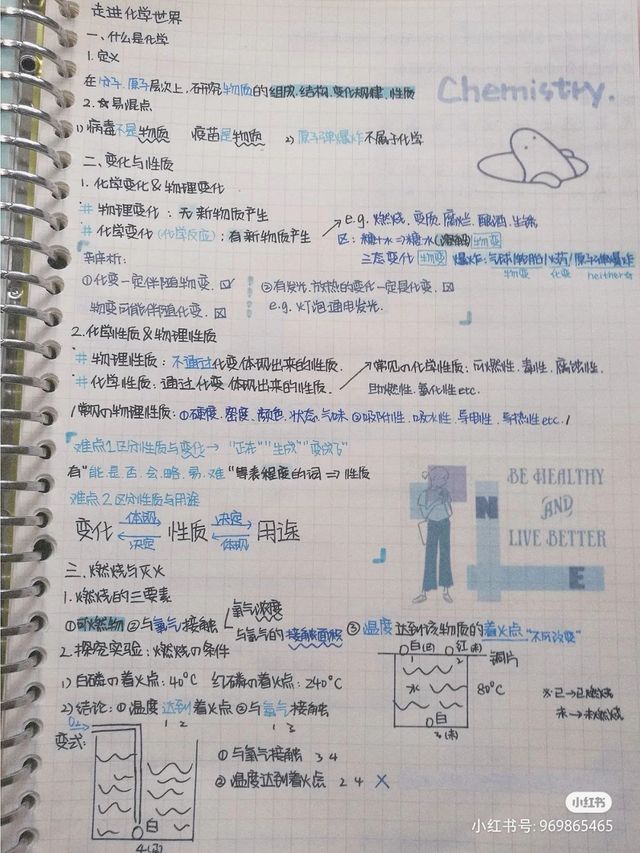 走进化学世界
一、什么是化学
1.定义
在分子、原子层次上,研究物质的组成、结构、变化规律、性质
Chemistry.
2.☆易混点
1) 病毒不是物质 疫苗是物质 2) 原子弹爆炸不属于化学
二、变化与性质
1. 化学变化&物理变化
# 物理变化:无新物质产生
# 化学变化(化学反应):有新物质产生
e.g. 燃烧、变质、腐烂、酿酒、生锈
区:糖+水⇒糖水(溶解)物变
三态变化 物变 爆炸:气球/轮胎/火药/原子弹爆炸
物变 化变 neither☆
辨析:
①化变一定伴随物变. ☑ ②有发光、放热的变化一定是化变. ☒
物变可能伴随化变. ☑ e.g. 灯泡通电发光.
2.化学性质&物理性质
# 物理性质:不通过化变体现出来的性质.
# 化学性质:通过化变体现出来的性质.
常见の化学性质:可燃性、毒性、腐蚀性、
助燃性、氧化性etc.
常见の物理性质:①硬度、密度、颜色、状态、气味 ②吸附性、吸水性、导电性、导热性etc.
难点1.区分性质与变化→ "正在" "生成" "变成了"
有"能、是、否、会、略、易、难"等表程度的词⇒性质
难点2.区分性质与用途
变化 体现 决定 性质 决定 体现 用途
BE HEALTHY
AND
LIVE BETTER
N
E
三、燃烧与灭火
1.燃烧的三要素
①可燃物 ②与氧气接触 氧气浓度
与氧气的接触面积
③温度达到该物质的着火点"不可改变"
2.探究实验:燃烧の条件
1) 白磷の着火点:40°C 红磷の着火点:240°C
2) 结论:①温度达到着火点 ②与氧气接触
1 2 1 3
白(已) 红(未)
1 2 铜片
水 80°C
白
3(未)
※已→已燃烧
未→未燃烧
变式: O₂
白
4(已)
①与氧气接触 3 4
②温度达到着火点 2 4 ×
小红书
小红书号: 969865465